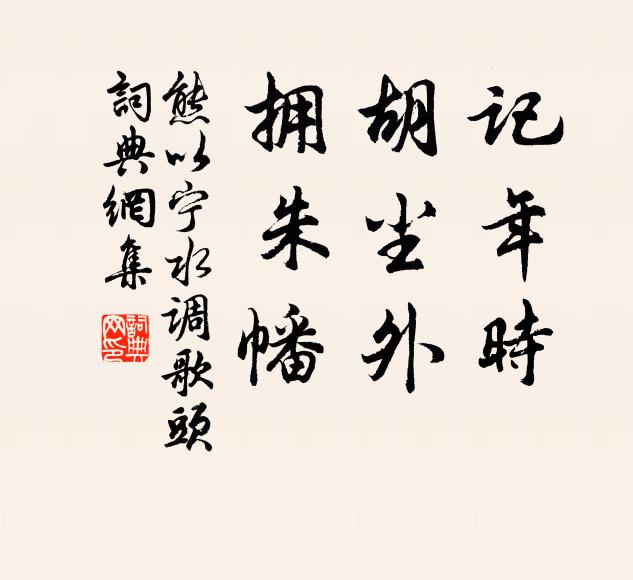 记年時
胡尘外
拥朱幡
熊以宁水调歌頭
詞典網集
詞典
网印